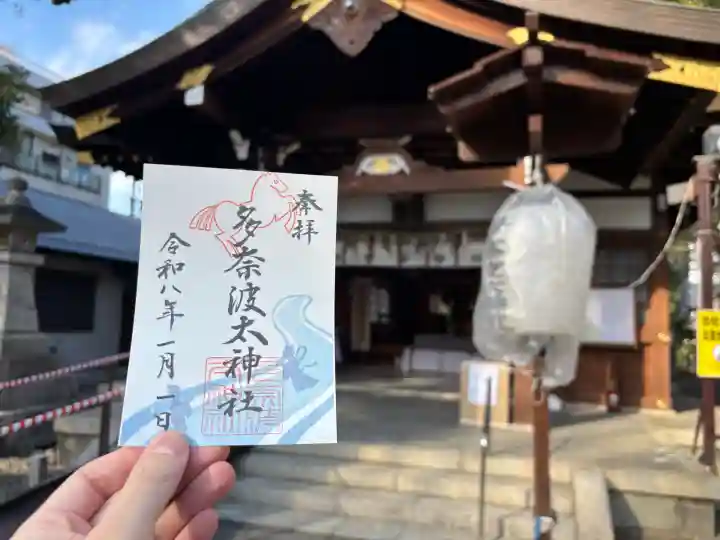 奉拝
多奈波太神社
令和八年一月一日